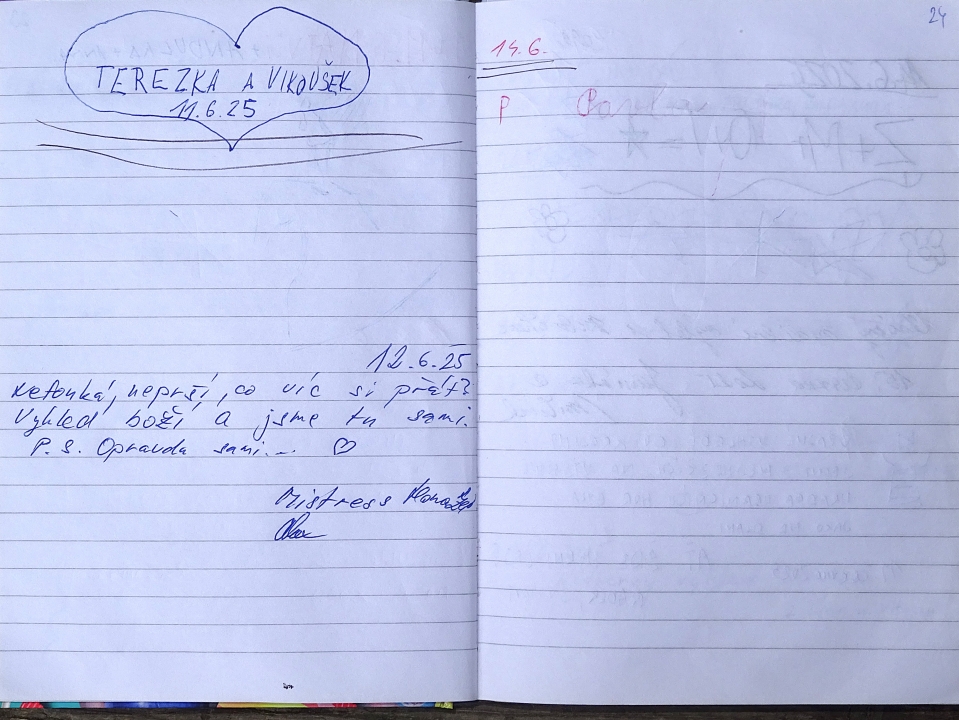 TEREZKA A VIKOUŠEK
11.6.25
12.6.25
Nefouká, neprší, co víc si přát?
Výhled boží a jsme tu sami.
P.S. Opravdu sami... ♡
Mistress
24
14.6.
P